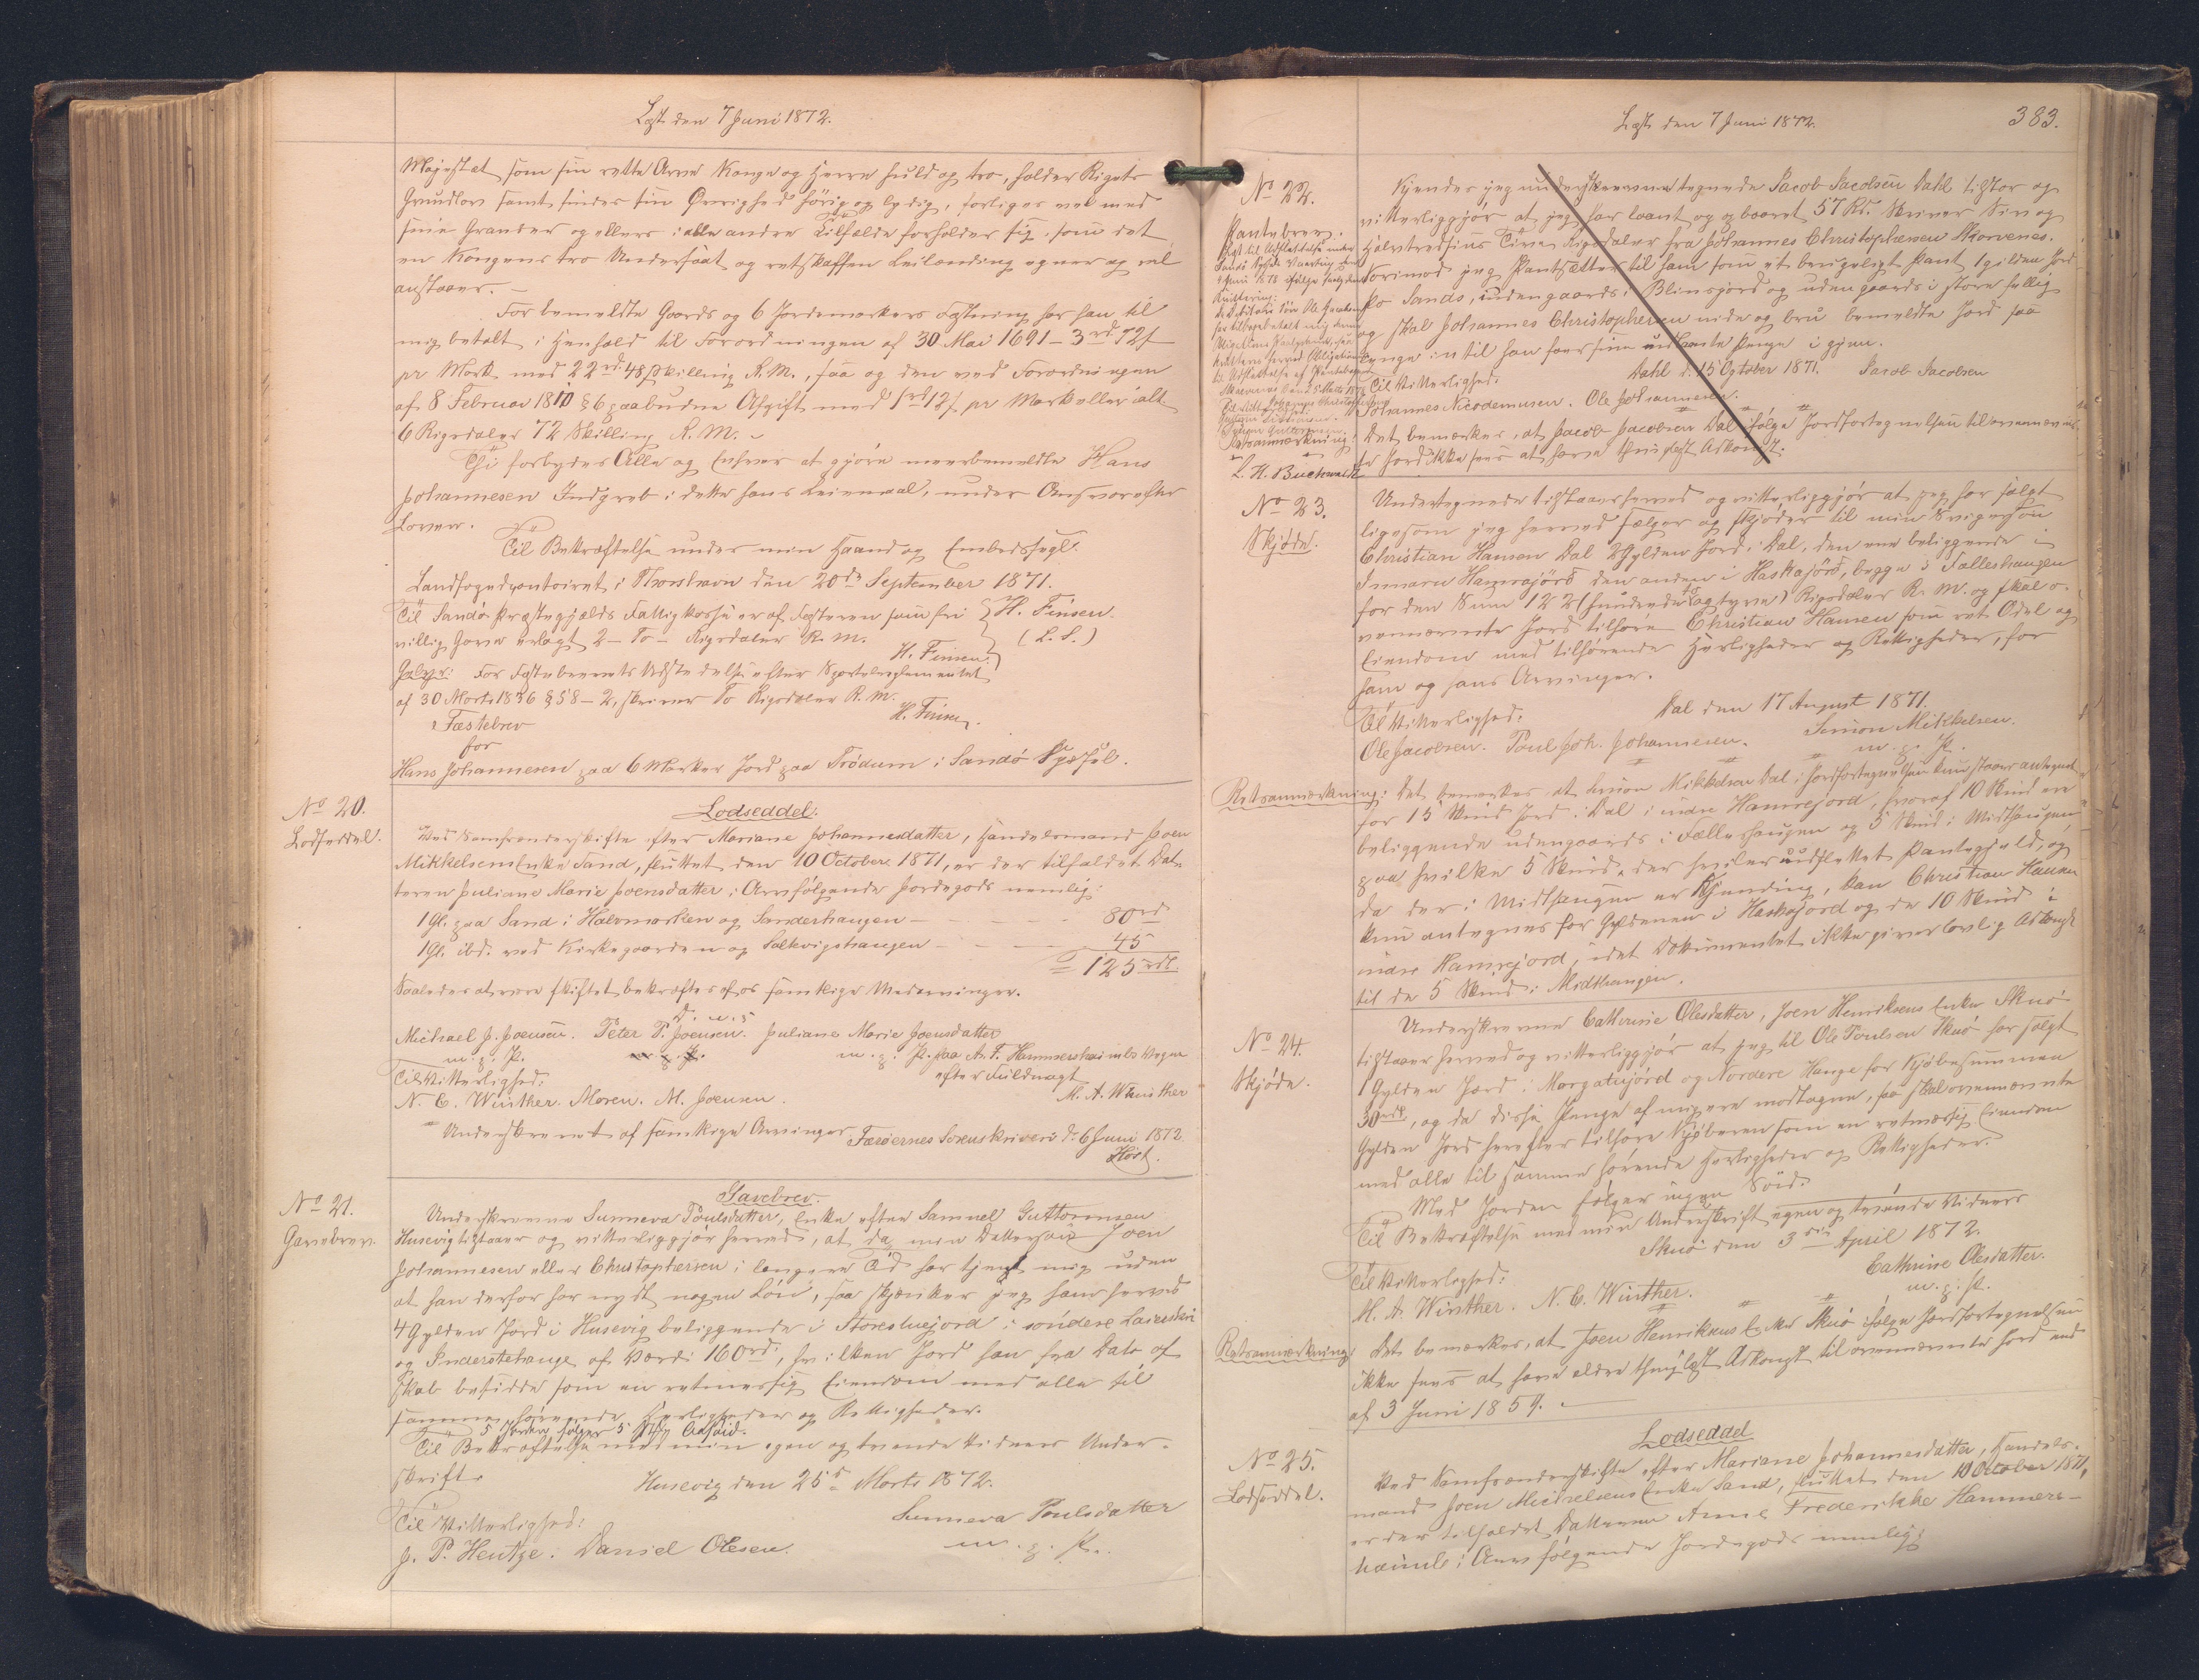 Læst den 7 Juni 1872.
Majestæt som sin rette Arve Konge og Herre huld og tro, holder Rigets
Grundlov samt findes sin Øvrighed hørig og lydig, forliges vel med
sine Grander og ellers i alle andre Tilfælde forholder sig, som det
en Kongens tro Undersaat og retskaffen Leilænding egner og vel
anstaaer. –
For bemeldte Gaards og 6 Jordemarkers Fæstning har han til
mig betalt i Henhold til Forordningen af 30 Mai 1691 – 3 rd. 72 ß
pr Mark med 22 rd. 48 Skilling R.M., saa og den ved Forordningen
af 8 Februar 1810 § 6 paabudne Afgift med 1 rd 12 ß pr Mark eller ialt
6 Rigsdaler 72 Skilling R.M. –
Thi forbydes Alle og Enhver at gjøre meerbemeldte Hans
Johannesen Indgreb i dette hans Leiemaal, under Ansvar efter
Loven.
Til Bekræftelse under min Haand og Embedssegl.
Landfogedcontoiret i Thorshavn den 20de September 1871.
Til Sandø Præstegjælds Fattigkasse er af Fæsteren som fri
villig Gave erlagt 2 – To – Rigsdaler R.M.
H. Finsen.
(L. S.)
H. Finsen.
Gebyr: For Fæstebrevets Udstedelse efter Sportelreglementet
af 30 Marts 1836 § 58 – 2, skriver To Rigsdaler R.M.
H. Finsen.
Fæstebrev
for
Hans Johannesen paa 6 Marker Jord paa Trødum i Sandø Syssel.
No 20.
Lodseddel.
Lodseddel.
Ved Samfrændeskifte efter Mariane Johannesdatter, Handelsmand Joen
Mikkelsens Enke Sand, sluttet den 10 October 1871, er der tilfaldet Dat-
teren Juliane Marie Joensdatter i Arv følgende Jordegods nemlig:
1 Gl. paa Sand i Halvmarken og Sanderhaugen – 80 rd
1 Gl. ibd. ved Kirkegaarden og Saltvigshaugen – 45
= 125 rdl.
Saaledes at være skiftet bekræftes af os samtlige Medarvinger.
D. u. s.
Michael J. Joensen. Peter P. Joensen. Juliane Marie Joensdatter
m. p. P. m. p. P. m. p. P. paa A. F. Hammershaimbs Vegne
efter Fuldmagt
Til Vitterlighed:
M. A. Winther
N. C. Winther. Maren. M. Joensen.
Underskrevet af samtlige Arvinger
Færøernes Sorenskriveri d. 6 Juni 1872.
Høst.
No 21.
Gavebrev.
Gavebrev.
Underskrevne Sunneva Poulsdatter, Enke efter Samuel Guttormsen
Husevig tilstaaer og vitterliggjør herved, at da min Dattersøn Joen
Johannesen eller Christophersen i længere Tid har tjent mig uden
at han derfor har nydt nogen Løn, saa skjænker jeg ham herved
4 Gylden Jord i Husevig beliggende i Storestuejord i søndere
og Inderstehauge af Værdi 160 rd., hvilken Jord han fra Dato af
skal besidde som en retmæssig Eiendom med alle til
samme hørende Herligheder og Rettigheder.
Til Bekræftelse med min egen og tvende Vidners Under-
skrift.
Husevig den 25de Marts 1872.
Til Vitterlighed:
Sunneva Poulsdatter
J. P. Hentze. Daniel Olesen.
m. p. P.
Læst den 7 Juni 1872.
383.
No 22.
Pantebrev.
L. H. Buchwaldt
Kjendes jeg underskrevne tegnede Jacob Jacobsen Dahl tilstor og
vitterliggjør at jeg har laant og opbaaret 57 Rd. Skriver Siv og
Halvtredsins Tive Rigsdaler fra Johannes Christophersen Skarvenes.
Hvorimod jeg Pantsætter til ham som et brugeligt Pant 1 gilden Jord
Paa Sands, indengaards i Blinsjord og udengaards i store hellig
og skal Johannes Christophersen nide og bru bemeldte Jord saa
længe in til han faar sine udlaante Penge i gjen.
Dahl d. 15 Oktober 1871. Jacob Jacobsen
Til Vitterlighed:
Johannes Nicodemusen. Ole Johannesen.
Retsanmærkning:
Det bemærkes, at Jacob Jacobsen Dal ifølge Jordfortegnelsen til ovennævn-
te Jord ikke sees at have thinglæst Adkomst.
No 23.
Skjøde.
Undertegnede tilstaaer herved og vitterliggjør at jeg har solgt
ligesom jeg herved sælger og skjøder til min Svigersøn
Christian Hansen Dal 2 Gylden Jord i Dal, den ene beliggende i
Inmaru Hamrajörð den anden i Haskajörð, begge i Fælleshaugen
for den Sum 122 (hundrede to og tyve) Rigsdaler R.M. og skal o-
vennævnte Jord tilhøre Christian Hansen som ret Odel og
Eiendom med tilhørende Herligheder og Rettigheder, for
ham og hans Arvinger.
Dal den 17 August 1871.
Til Vitterlighed:
Simon Mikkelsen.
Ole Jacobsen. Poul Joh. Johannesen.
m. p. P.
Retsanmærkning: Det bemærkes at Simon Mikkelsen Dal i Jordfortegnelsen kun staaer antegnet
for 15 Skind Jord i Dal i indre Hamrejord, hvoraf 10 Skind ere
beliggende udengaards i Fælleshaugen og 5 Skind i Midthaugen
paa hvilke 5 Skind, der hviler uudslettet Pantegjæld, og
da der i Midthaugen er Kjending, kan Christian Hansen
kun antegnes for Gyldenen i Haskajord og de 10 Skind i
indre Hamrejord, idet Dokumentet ikke giver lovlig Adkomst
til de 5 Skind i Midthaugen.
No 24.
Skjøde.
Underskrevne Cathrine Olesdatter, Joen Henriksens Enke Skuø
tilstaaer herved og vitterliggjør at jeg til Ole Poulsen Skuø har solgt
1 Gylden Jord i Morgatujörd og Nordere Hauge for Kjøbesummen
30 rdl., og da disse Penge af mig ere modtagne, saa skal ovennævnte
Gylden Jord herefter tilhøre Kjøberen som en retmæssig Eiendom
med alle til samme hørende Herligheder og Rettigheder.
Med Jorden følger ingen Söid.
Til Bekræftelse med min Underskrift egen og tvende Vidners
Skuø den 3die April 1872.
Til Vitterlighed:
Cathrine Olesdatter.
M. A. Winther. N. C. Winther.
m. p. P.
Retsanmærkning Det bemærkes, at Joen Henriksens Enke Skuø ifølge Jordfortegnelsen
ikke sees at have ældre thinglæst Adkomst til ovennævnte Jord end
af 3 Juni 1859. –
No 25.
Lodseddel.
Lodseddel
Ved Samfrændeskifte efter Mariane Johannesdatter, Handels-
mand Joen Michelsens Enke Sand, sluttet den 10 October 1871,
er der tilfaldet Datteren Anne Frederikke Hammers-
haimb i Arv følgende Jordegods nemlig: